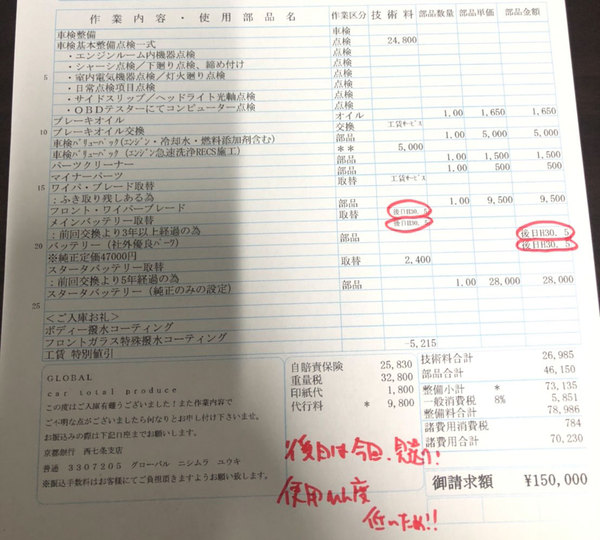 作業内容・使用部品名 作業区分 技術料 部品数量 部品単価 部品金額
車検整備 車検
車検基本整備点検一式 点検 24,800
・エンジンルーム内機器点検 点検
・シャーシ点検／下廻り点検、締め付け 点検
5 ・室内電気機器点検／灯火廻り点検 点検
・日常点検項目点検 点検
・サイドスリップ／ヘッドライト光軸点検 点検
・OBDテスターにてコンピューター点検 点検
ブレーキオイル オイル 1.00 1,650 1,650
10 ブレーキオイル交換 交換 工賃サービス
車検バリューパック(エンジン・冷却水・燃料添加剤含む) 部品 1.00 5,000 5,000
車検バリューパック(エンジン急速洗浄RECS施工) ** 5,000
パーツクリーナー 部品 1.00 1,500 1,500
マイナーパーツ 部品 1.00 500 500
15 ワイパ・ブレード取替 取替 工賃サービス
；ふき取り残しある為
フロント・ワイパーブレード 部品 1.00 9,500 9,500
メインバッテリー取替 取替 後日H30. 5
；前回交換より3年以上経過の為 後日H30. 5
20 バッテリー（社外優良パーツ） 部品 後日H30. 5
※純正定価47000円 後日H30. 5
スタータバッテリー取替 取替 2,400
；前回交換より5年経過の為
スタータバッテリー（純正のみの設定） 部品 1.00 28,000 28,000
25
＜ご入庫お礼＞
ボディー撥水コーティング
フロントガラス特殊撥水コーティング
工賃 特別値引 -5,215
GLOBAL
car total produce
この度はご入庫有難うございました！また作業内容で
ご不明な点がございましたら何なりとお申し付け下さいませ。
お振込みの際は下記口座までお願いします。
京都銀行 西七条支店
普通 3307205 グローバル ニシムラ ユウキ
※振込手数料はお客様にてご負担頂きますようお願い致します。
自賠責保険 25,830
重量税 32,800
印紙代 1,800
代行料 * 9,800
技術料合計 26,985
部品合計 46,150
整備小計 * 73,135
一般消費税 8% 5,851
整備料合計 78,986
諸費用消費税 784
諸費用合計 70,230
御請求額 ¥150,000
後日は今回、見送り!
使用
低いため!!